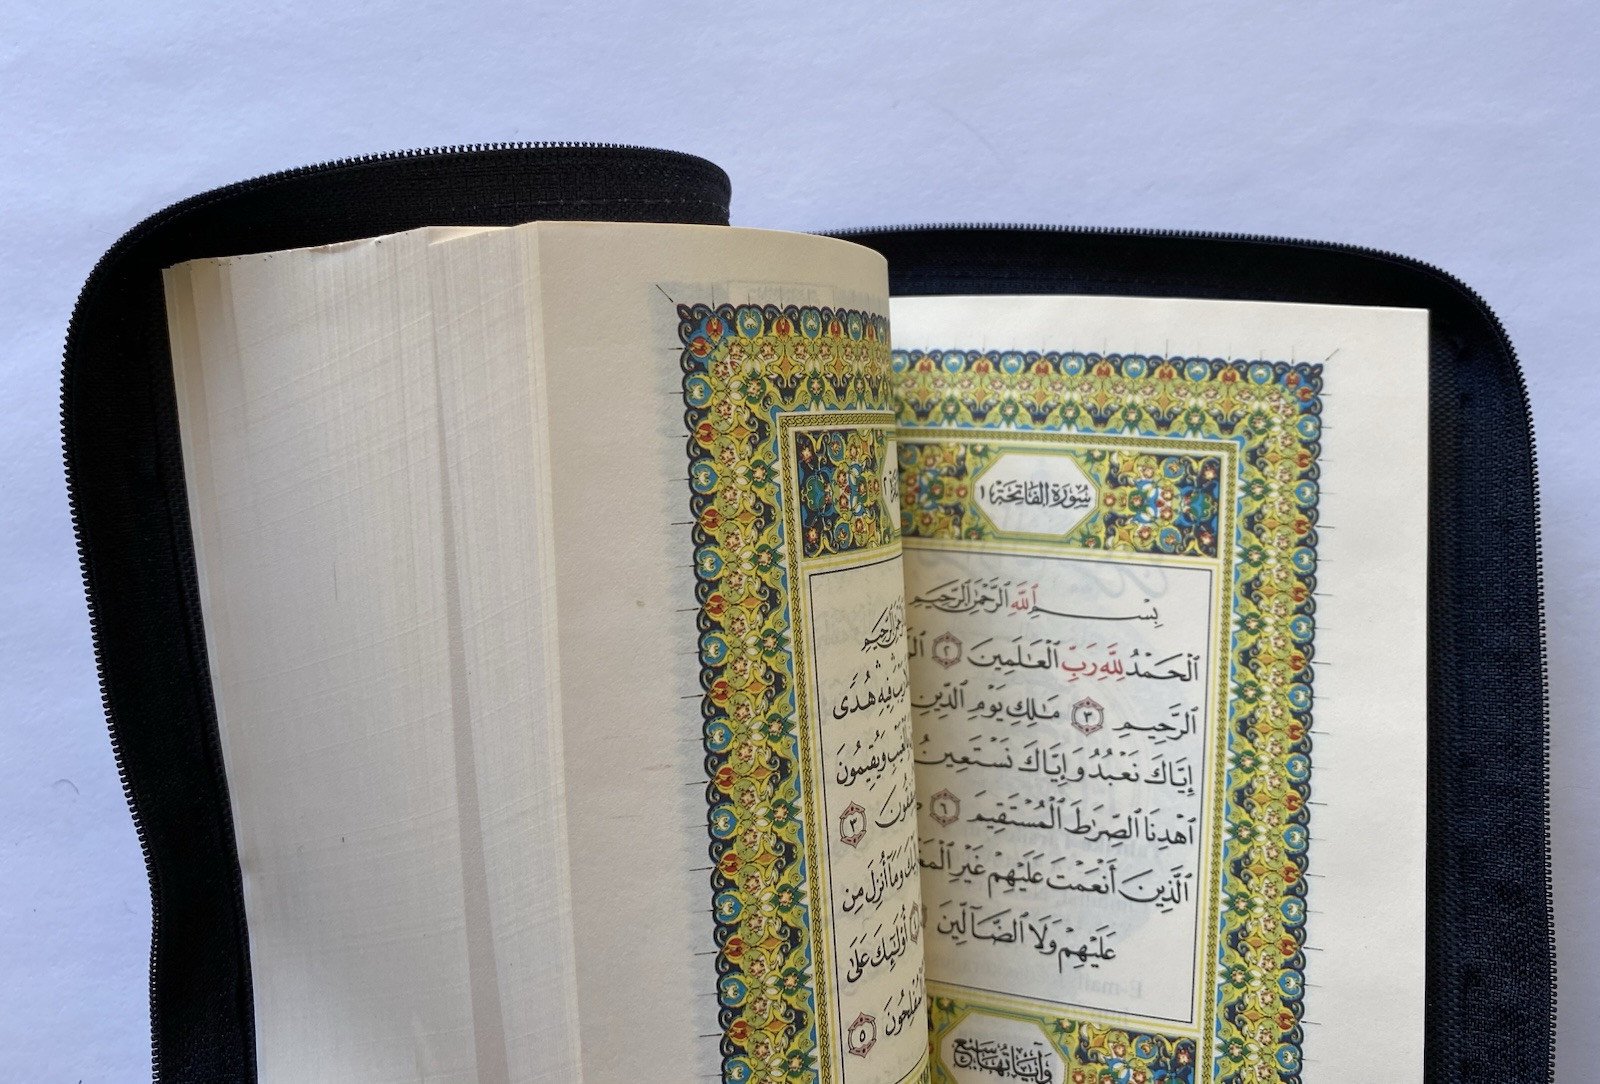 سُورَةُ الفَاتِحَةِ ١
بِسْمِ ٱللَّهِ ٱلرَّحْمَٰنِ ٱلرَّحِيمِ
ٱلْحَمْدُ لِلَّهِ رَبِّ ٱلْعَٰلَمِينَ ٢
ٱلرَّحِيمِ ٣ مَٰلِكِ يَوْمِ ٱلدِّينِ
إِيَّاكَ نَعْبُدُ وَإِيَّاكَ نَسْتَعِينُ
ٱهْدِنَا ٱلصِّرَٰطَ ٱلْمُسْتَقِيمَ ٦
ٱلَّذِينَ أَنْعَمْتَ عَلَيْهِمْ غَيْرِ
عَلَيْهِمْ وَلَا ٱلضَّآلِّينَ
وَآيَاتُهَا سَبْعٌ
٢
ٱلرَّحِيمِ
فِيهِ هُدًى
وَيُقِيمُونَ
٣
وَمَآ أُنزِلَ مِن
أُو۟لَٰٓئِكَ عَلَىٰ
ٱلْمُفْلِحُونَ ٥